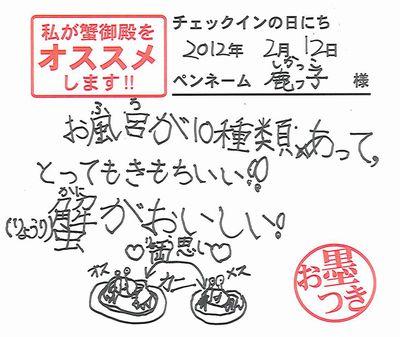 私が蟹御殿を
オススメ
します!!
チェックインの日にち
2012年 2月 12日
しかっこ
ペンネーム 鹿っ子 様
ふろ
お風呂が10種類あって、
とってもきもちいい!!
かに
(りょうり)蟹がおいしい!
♡両思い♡
オス カニ メス
お墨つき